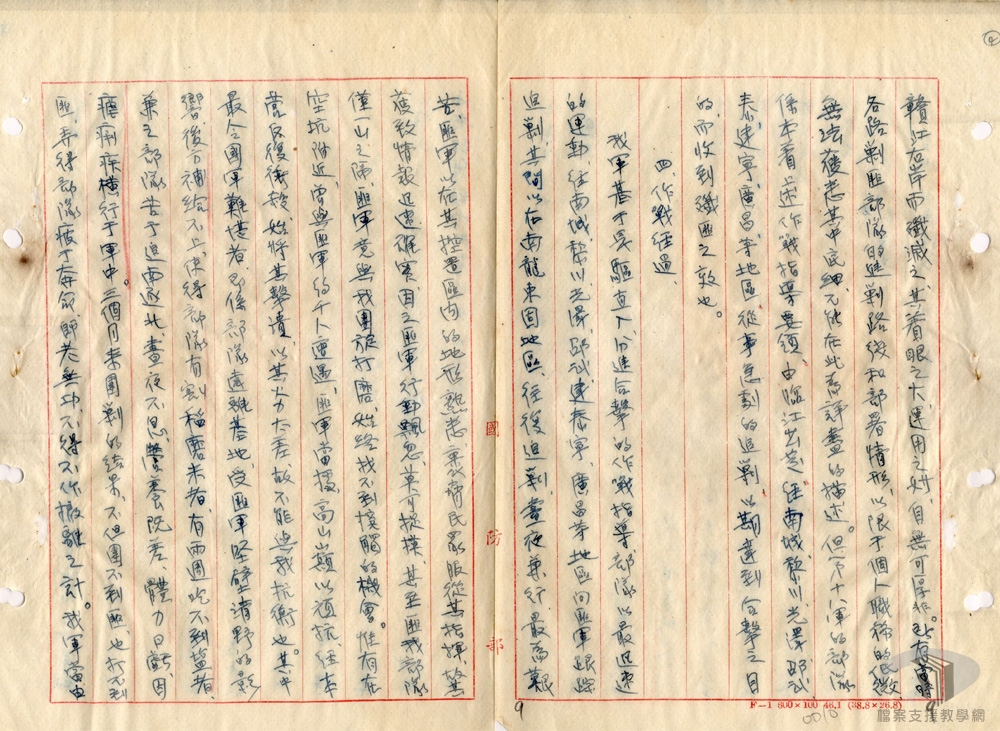 贛江右岸而殲滅之、其着眼之大、運用之妙、自無可厚非、至有當時
各路剿匪部隊的進剿路綫和部署情形、以限于個人職務的低微
無法獲悉其中民細、不能在此為詳盡的描述。但第十軍的部隊
係本着上述作戰指導要領、由臨江出發、經南城黎川光澤邵武
泰、建寧、廣昌等地區、從事急剧的追剿、以期達到合擊之目
的、而收到殲匪之效也。
四、作戰經過、
我軍基于長驅直入、分進合擊的作戰指導、部隊以最迅速
的運動、往南城黎川光澤、邵武建泰寧、廣昌等地區向匪軍跟踪
追剿、其間以在南龍東固地區、往復追剿、晝夜兼行、最為艱
苦、匪軍以在其控置區內的地形熟悉、裹脅民眾服從其指揮、其
獲致情報迅速確實、因之匪軍行動飄忽、莫可捉摸、甚至匪我部隊
僅一山之隔、匪軍竟與我團旋打磨、始終找不到接觸的機會。惟有在
空坑附近、曾與匪軍約千人遭遇、匪軍當援高山巔以頑抗、經本
営反復衝殺、始將其擊潰、以其火力太差故不能與我抗衡也。其中
最令國軍難堪者、即係部隊遠離基地、受匪軍堅壁清野的影
響、後方補給不上、使得部隊有割稻磨米者、有兩週吃不到盐者、
兼之部隊苦于追南逐北、晝夜不息、營養既差、體力日虧、因
瘧痢疾橫行于軍中、三個月來圍剿的結果、不但圍不到匪、也打不到
匪、弄得部隊疲于奔命、師老無功、不得不作撤離之計。我軍當由
國防部
9
9
0010
F—1 600×100 46.1 (38.8×26.8)
檔案支援教學網